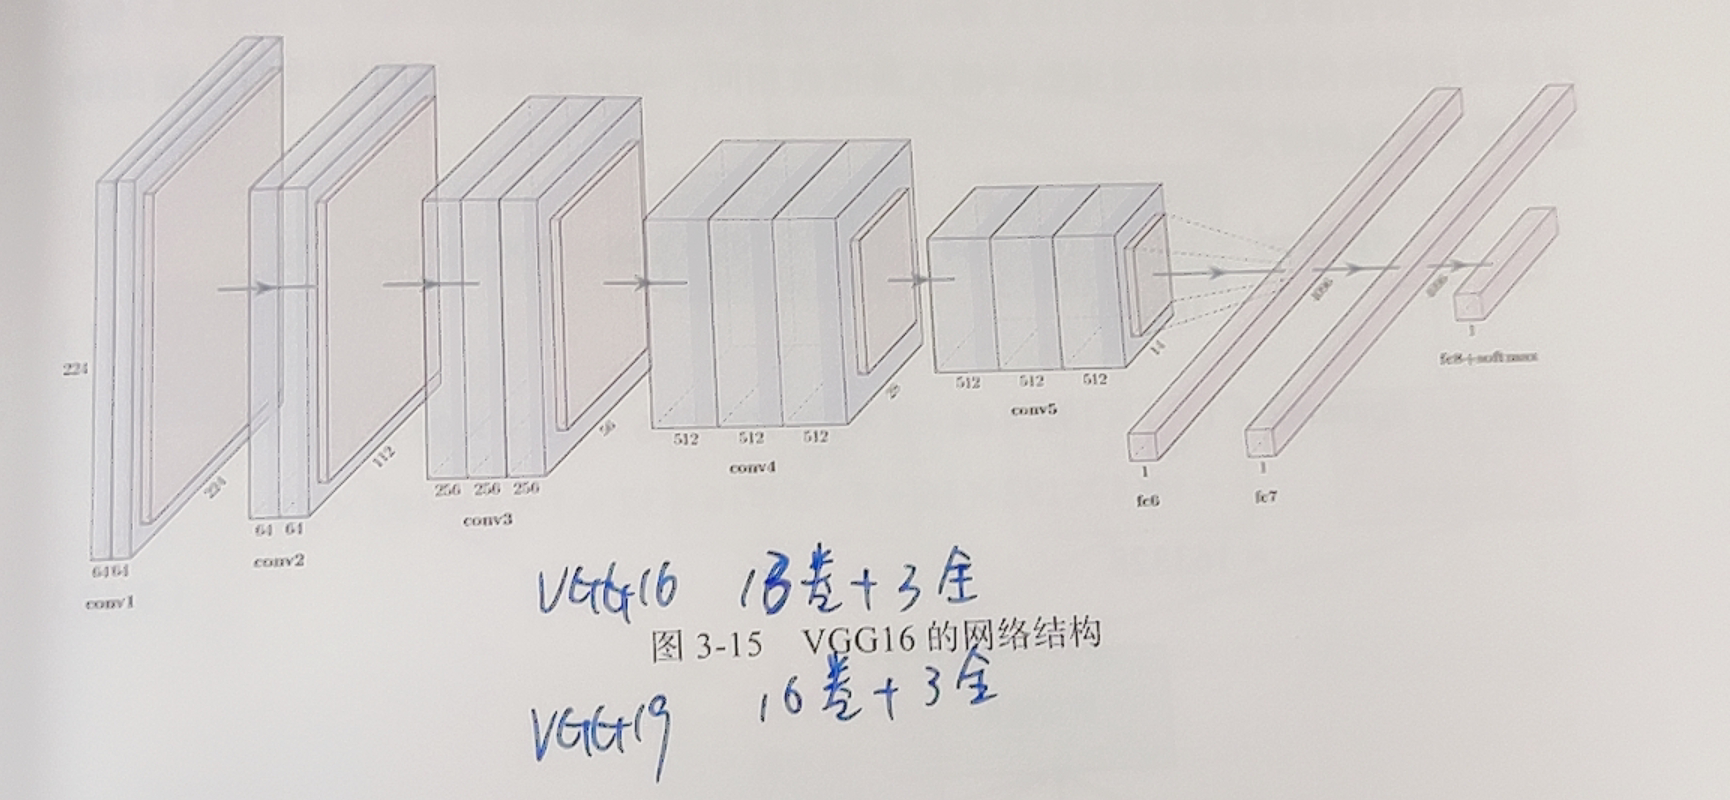 224
224
6464
conv1
112
64 64
conv2
56
256 256 256
conv3
28
512 512 512
conv4
14
512 512 512
conv5
4096
1
fc6
4096
1
fc7
1
fc8+softmax
VGG16 13卷+3全
图 3-15 VGG16 的网络结构
VGG19 16卷+3全